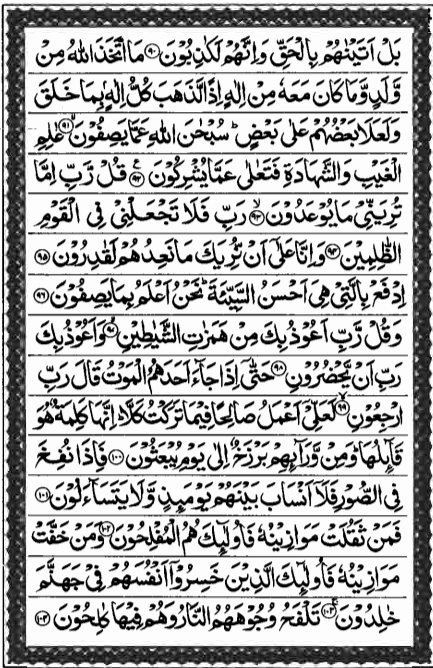 بَلْ اَتَيْنٰهُمْ بِالْحَقِّ وَاِنَّهُمْ لَكٰذِبُوْنَ ۝٩٠ مَا اتَّخَذَ اللّٰهُ مِنْ
وَّلَدٍ وَّمَا كَانَ مَعَهٗ مِنْ اِلٰهٍ اِذًا لَّذَهَبَ كُلُّ اِلٰهٍۭ بِمَا خَلَقَ
وَلَعَلَا بَعْضُهُمْ عَلٰى بَعْضٍ ؕ سُبْحٰنَ اللّٰهِ عَمَّا يَصِفُوْنَ ۝٩١ عٰلِمِ
الْغَيْبِ وَالشَّهَادَةِ فَتَعٰلٰى عَمَّا يُشْرِكُوْنَ ۝٩٢ قُلْ رَّبِّ اِمَّا
تُرِيَنِّيْ مَا يُوْعَدُوْنَ ۝٩٣ رَبِّ فَلَا تَجْعَلْنِيْ فِي الْقَوْمِ
الظّٰلِمِيْنَ ۝٩٤ وَاِنَّا عَلٰٓى اَنْ نُّرِيَكَ مَا نَعِدُهُمْ لَقٰدِرُوْنَ ۝٩٥
اِدْفَعْ بِالَّتِيْ هِيَ اَحْسَنُ السَّيِّئَةَ ؕ نَحْنُ اَعْلَمُ بِمَا يَصِفُوْنَ ۝٩٦
وَقُلْ رَّبِّ اَعُوْذُ بِكَ مِنْ هَمَزٰتِ الشَّيٰطِيْنِ ۝٩٧ وَاَعُوْذُ بِكَ
رَبِّ اَنْ يَّحْضُرُوْنِ ۝٩٨ حَتّٰٓى اِذَا جَآءَ اَحَدَهُمُ الْمَوْتُ قَالَ رَبِّ
ارْجِعُوْنِ ۝٩٩ لَعَلِّيْٓ اَعْمَلُ صَالِحًا فِيْمَا تَرَكْتُ كَلَّا ؕ اِنَّهَا كَلِمَةٌ هُوَ
قَآئِلُهَا ؕ وَمِنْ وَّرَآئِهِمْ بَرْزَخٌ اِلٰى يَوْمِ يُبْعَثُوْنَ ۝١٠٠ فَاِذَا نُفِخَ
فِي الصُّوْرِ فَلَآ اَنْسَابَ بَيْنَهُمْ يَوْمَئِذٍ وَّلَا يَتَسَآءَلُوْنَ ۝١٠١
فَمَنْ ثَقُلَتْ مَوَازِيْنُهٗ فَاُولٰٓئِكَ هُمُ الْمُفْلِحُوْنَ ۝١٠٢ وَمَنْ خَفَّتْ
مَوَازِيْنُهٗ فَاُولٰٓئِكَ الَّذِيْنَ خَسِرُوْٓا اَنْفُسَهُمْ فِيْ جَهَنَّمَ
خٰلِدُوْنَ ۝١٠٣ تَلْفَحُ وُجُوْهَهُمُ النَّارُ وَهُمْ فِيْهَا كٰلِحُوْنَ ۝١٠٤